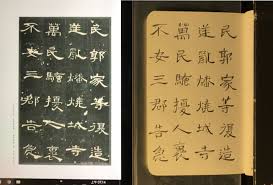 民郭家等復造
逆亂燔燒城寺
萬民騷擾人裹
不安三郡告急
民郭家等復造
逆亂燔燒城寺
萬民騷擾人裹
不安三郡告急